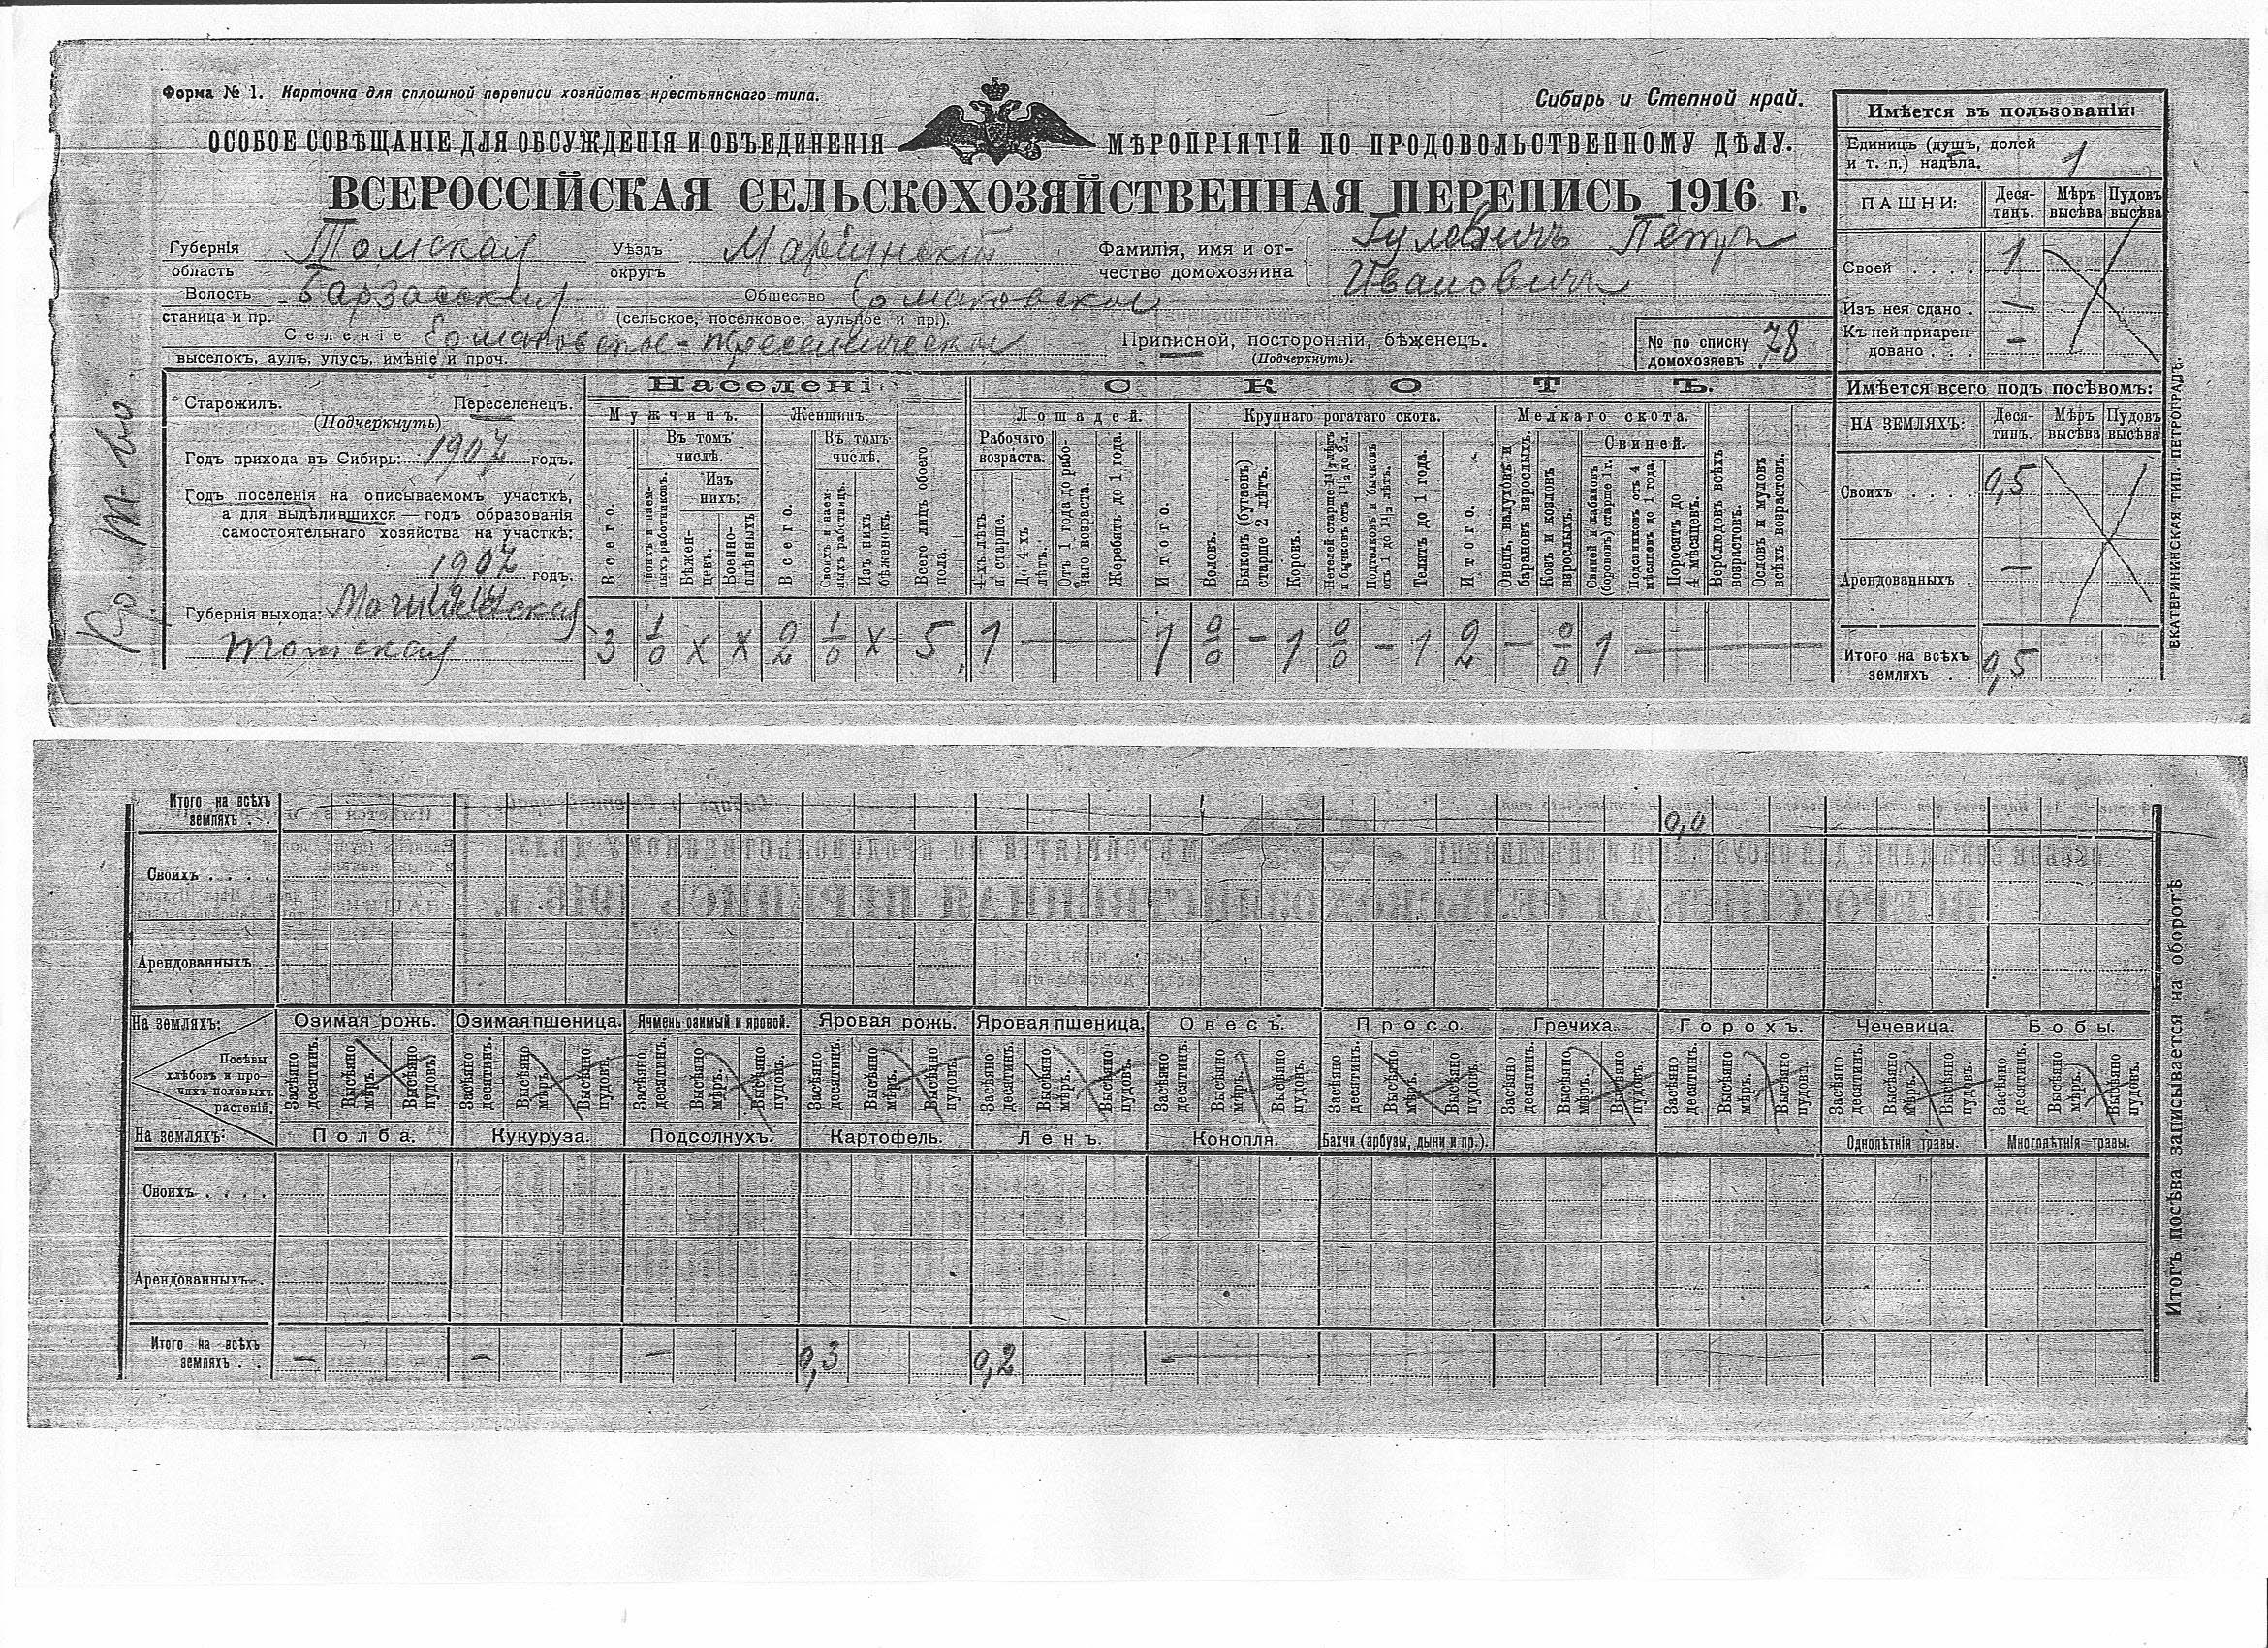 Форма № 1. Карточка для сплошной переписи хозяйствъ крестьянскаго типа.
Сибирь и Степной край.
ОСОБОЕ СОВѢЩАНІЕ ДЛЯ ОБСУЖДЕНІЯ И ОБЪЕДИНЕНІЯ МѢРОПРІЯТІЙ ПО ПРОДОВОЛЬСТВЕННОМУ ДѢЛУ.
ВСЕРОССІЙСКАЯ СЕЛЬСКОХОЗЯЙСТВЕННАЯ ПЕРЕПИСЬ 1916 г.
Губернія Томская Уѣздъ Маріинскій Фамилія, имя и от- Гулевичъ Петръ
область округъ чество домохозяина Ивановичъ
Волость Барзасская Общество Ермаковское
станица и пр. (сельское, поселковое, аульное и пр.).
Селеніе Ермаковское- Приписной, посторонній, бѣженецъ.
выселокъ, аулъ, улусъ, имѣніе и проч. (Подчеркнуть).
№ по списку домохозяевъ 78
Старожилъ. Переселенецъ.
(Подчеркнуть)
Годъ прихода въ Сибирь: 1907 годъ.
Годъ поселенія на описываемомъ участкѣ,
а для выдѣлившихся — годъ образованія
самостоятельнаго хозяйства на участкѣ:
1907 годъ.
Губернія выхода:
Томская
Населені
Мужчинъ. Женщинъ.
Въ томъ числѣ. Въ томъ числѣ.
Изъ нихъ:
Всего.
Своихъ и наем-ныхъ работниковъ.
Бѣжен-цевъ.
Военно-плѣнныхъ
Всего.
Своихъ и наем-ныхъ работницъ.
Изъ нихъ бѣженокъ.
Всего лицъ обоего пола.
3 1/0 х х 2 1/0 х 5
СКОТЪ.
Лошадей. Крупнаго рогатаго скота. Мелкаго скота.
Рабочаго возраста.
Свиней.
4-хъ лѣтъ и старше.
До 4-хъ лѣтъ.
Отъ 1 года до рабо-чаго возраста.
Жеребятъ до 1 года.
Итого.
Воловъ.
Быковъ (бугаевъ) старше 2 лѣтъ.
Коровъ.
Нетелей старше 1½ лѣтъ и бычковъ отъ 1½ до 2 л.
Подтелковъ и бычковъ отъ 1 до 1½ лѣтъ.
Телятъ до 1 года.
Итого.
Овецъ, валуховъ и барановъ взрослыхъ.
Козъ и козловъ взрослыхъ.
Свиней и кабановъ (борововъ) старше 1 г.
Подсвинковъ отъ 4 мѣсяцевъ до 1 года.
Поросятъ до 4 мѣсяцевъ.
Верблюдовъ всѣхъ возрастовъ.
Ословъ и муловъ всѣхъ возрастовъ.
1 — 1 0/0 - 1 0/0 - 1 2 — 0/0 1 —
Имѣется въ пользованіи:
Единицъ (душъ, долей
и т. п.) надѣла. 1
ПАШНИ: Деся-тинъ. Мѣръ высѣва Пудовъ высѣва
Своей . . . . 1
Изъ нея сдано . —
Къ ней приарен-
довано . . . -
Имѣется всего подъ посѣвомъ:
НА ЗЕМЛЯХЪ: Деся-тинъ. Мѣръ высѣва Пудовъ высѣва
Своихъ . . . . 0,5
Арендованныхъ . —
Итого на всѣхъ
земляхъ . . 0,5
ЕКАТЕРИНИНСКАЯ ТИП. ПЕТРОГРАДЪ.
Итого на всѣхъ
земляхъ . . 0,0
Своихъ . . . .
Арендованныхъ . .
На земляхъ: Озимая рожь. Озимая пшеница. Ячмень озимый и яровой. Яровая рожь. Яровая пшеница. Овесъ. Просо. Гречиха. Горохъ. Чечевица. Бобы.
Посѣвы
хлѣбовъ и про-
чихъ полевыхъ
растеній.
Засѣяно десятинъ. Высѣяно мѣръ. Высѣяно пудовъ.
Засѣяно десятинъ. Высѣяно мѣръ. Высѣяно пудовъ.
Засѣяно десятинъ. Высѣяно мѣръ. Высѣяно пудовъ.
Засѣяно десятинъ. Высѣяно мѣръ. Высѣяно пудовъ.
Засѣяно десятинъ. Высѣяно мѣръ. Высѣяно пудовъ.
Засѣяно десятинъ. Высѣяно мѣръ. Высѣяно пудовъ.
Засѣяно десятинъ. Высѣяно мѣръ. Высѣяно пудовъ.
Засѣяно десятинъ. Высѣяно мѣръ. Высѣяно пудовъ.
Засѣяно десятинъ. Высѣяно мѣръ. Высѣяно пудовъ.
Засѣяно десятинъ. Высѣяно мѣръ. Высѣяно пудовъ.
Засѣяно десятинъ. Высѣяно мѣръ. Высѣяно пудовъ.
На земляхъ: Полба. Кукуруза. Подсолнухъ. Картофель. Ленъ. Конопля. Бахчи (арбузы, дыни и пр.). Однолѣтнія травы. Многолѣтнія травы.
Своихъ . . . .
Арендованныхъ . .
Итого на всѣхъ
земляхъ . . — — — 0,3 0,2 —
Итогъ посѣва записывается на оборотѣ